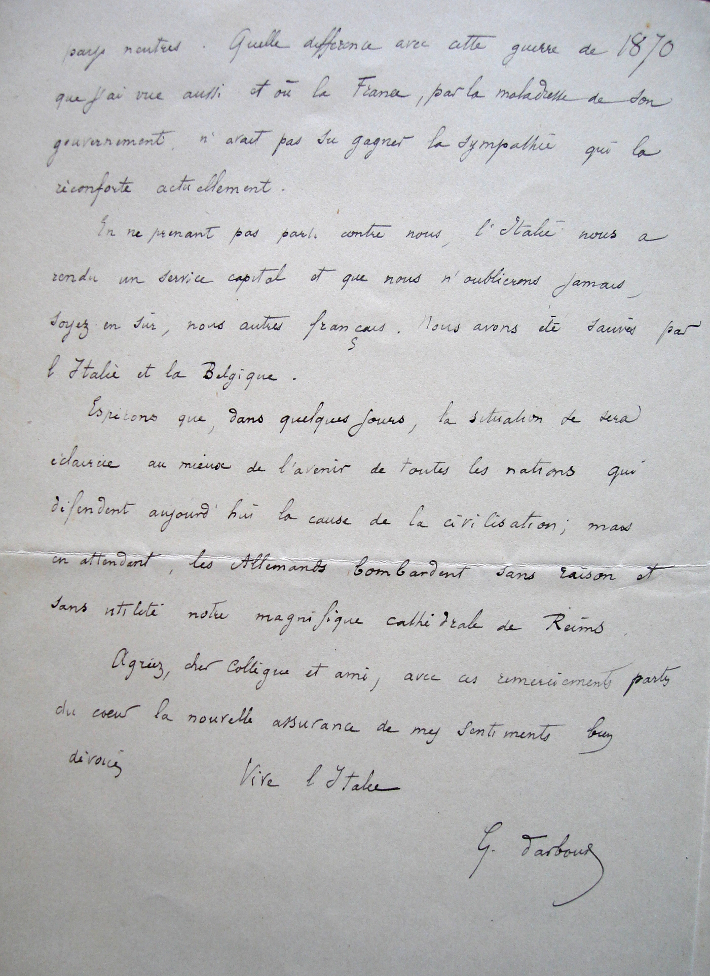 pays neutres. Quelle différence avec cette guerre de 1870
que j'ai vue aussi et où la France, par la maladresse de son
gouvernement, n'avait pas su gagner la sympathie qui la
réconforte actuellement.
En ne prenant pas parti contre nous, l'Italie nous a
rendu un service capital et que nous n'oublierons jamais,
soyez en sûr, nous autres français. Nous avons été sauvés par
l'Italie et la Belgique.
Espérons que, dans quelques jours, la situation se sera
éclaircie au mieux de l'avenir de toutes les nations qui
défendent aujourd'hui la cause de la civilisation; mais
en attendant, les Allemands bombardent sans raison et
sans utilité notre magnifique cathédrale de Reims.
Agréez, cher Collègue et ami, avec ces remerciements partis
du coeur la nouvelle assurance de mes sentiments bien
dévoués
Vive l'Italie
G. Darboux